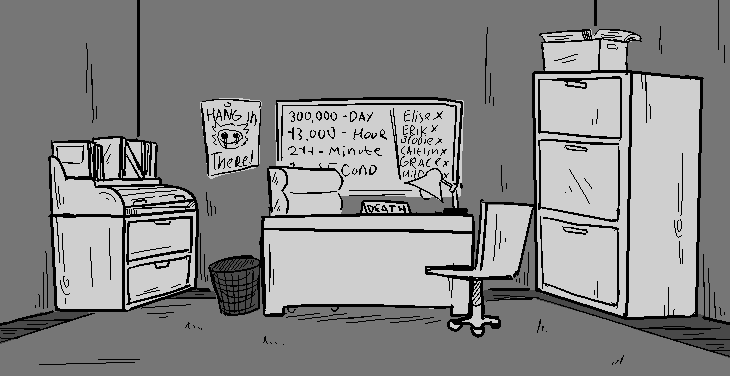 HANG in
There!
300,000 - DAY
13,000 - Hour
211 - Minute
COND
Elise x
ERiK x
CAiTLiN x
GRACE x
DEATH